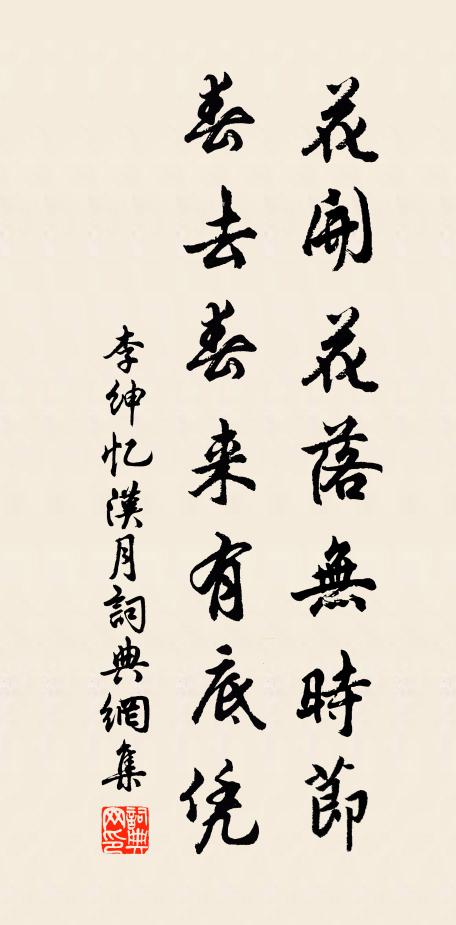 花開花落無時節
春去春来有底凭
李紳忆漢月詞典網集
詞典
网印